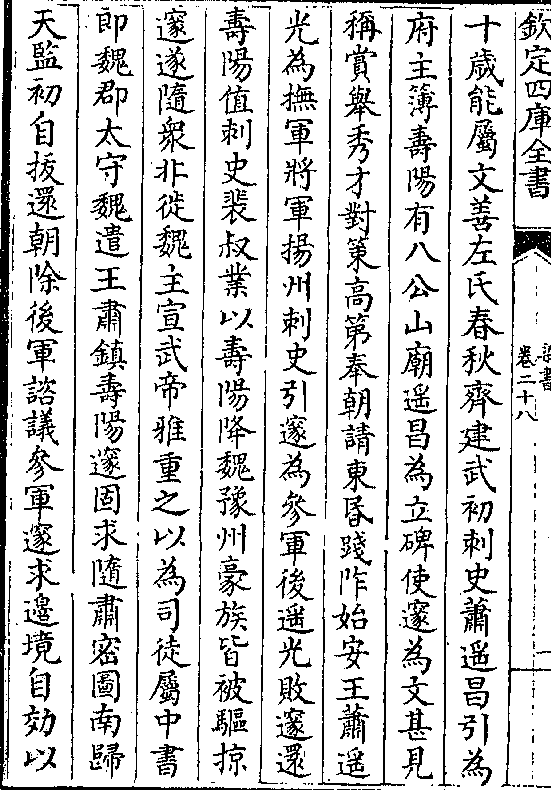 欽定四庫全書
梁書
卷二十八
十歲能屬文善左氏春秋齊建武初刺史蕭遥昌引為
府主簿壽陽有八公山廟遥昌為立碑使邃為文甚見
稱賞舉秀才對策高第奉朝請東昏踐阼始安王蕭遥
光為撫軍將軍揚州刺史引邃為參軍後遥光敗邃還
壽陽值刺史裴叔業以壽陽降魏豫州豪族皆被驅掠
邃遂隨衆北徙魏主宣武帝雅重之以為司徒屬中書
郎魏郡太守魏遣王肅鎮壽陽邃固求隨肅密圖南歸
天監初自拔還朝除後軍諮議參軍邃求邊境自効以